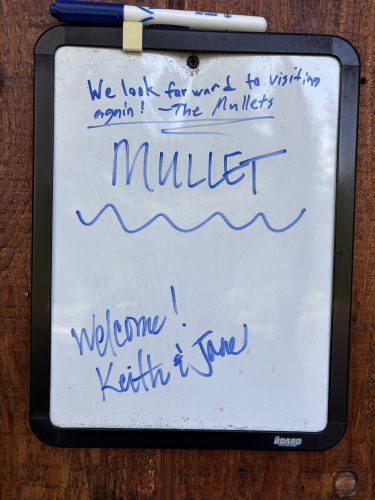 We look forward to visiting
again! -The Mullets
MULLET
Welcome!
Keith & Jane
BOARD